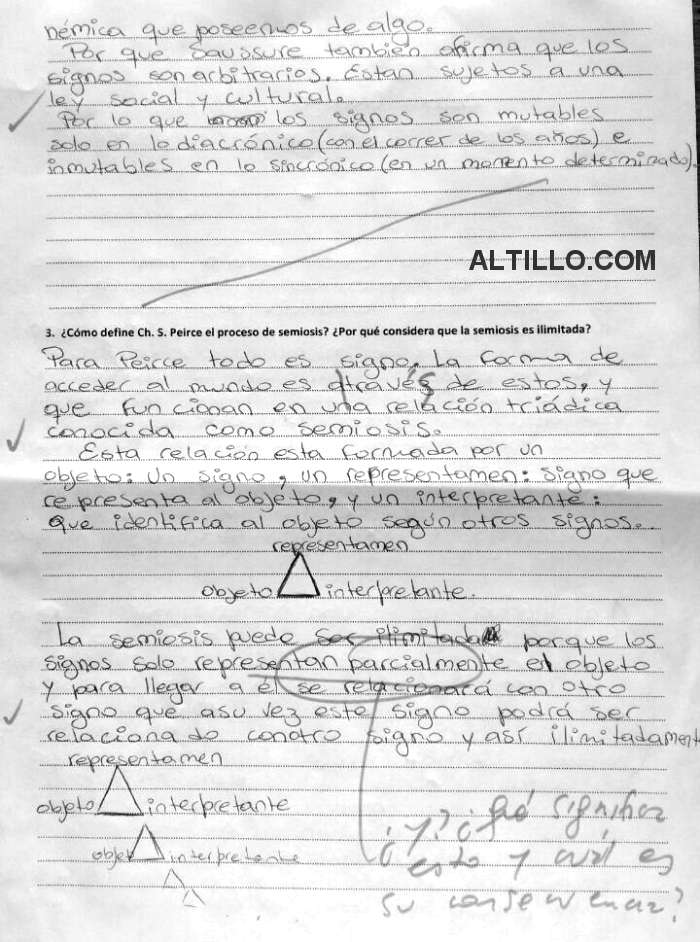 némica que poseemos de algo.
Por que Saussure también afirma que los
signos son arbitrarios. Estan sujetos a una
ley social y cultural.
Por lo que los signos son mutables
solo en lo diacrónico (con el correr de los años) e
inmutables en lo sincrónico (en un momento determinado).
ALTILLO.COM
3. ¿Cómo define Ch. S. Peirce el proceso de semiosis? ¿Por qué considera que la semiosis es ilimitada?
Para Peirce todo es signo. La forma de
acceder al mundo es através de estos, y
que funcionan en una relación triádica
conocida como semiosis.
Esta relación esta formada por un
objeto: Un signo, un representamen: signo que
representa al objeto, y un interpretante:
que identifica al objeto según otros signos.
representamen
objeto interpretante.
La semiosis puede ser ilimitada porque los
signos solo representan parcialmente el objeto
y para llegar a él se relacionará con otro
signo que asu vez este signo podrá ser
relacionado conotro signo y así ilimitadament
representamen
objeto interpretante
objet interpretante
¿y? ¿qué significa
esto y cuál es
su consecuencia?